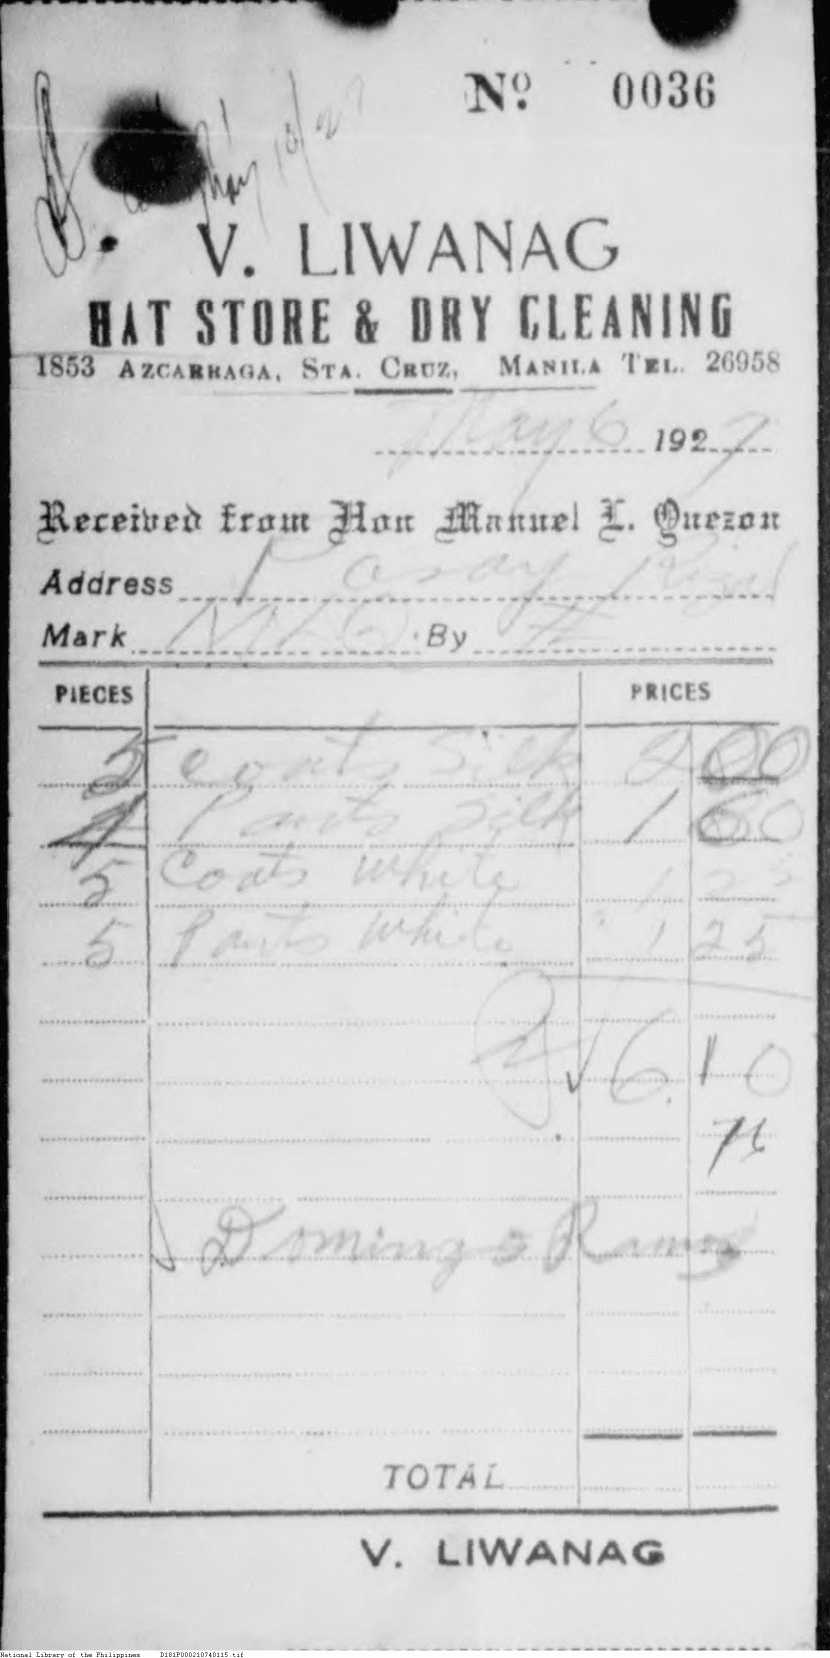 Nº 0036
May 10/27
V. LIWANAG
HAT STORE & DRY CLEANING
1853 AZCARRAGA, STA. CRUZ, MANILA TEL. 26958
May 6 1927
Received from Hon Manuel L. Quezon
Address Pasay Rizal
Mark MLQ By
PIECES PRICES
5 coats silk 2 00
4 Pants silk 1 60
5 Coats white 1 25
5 Pants white 1 25
6.10
Domingo Ramos
TOTAL
V. LIWANAG
National Library of the Philippines D181P000210740115.tif